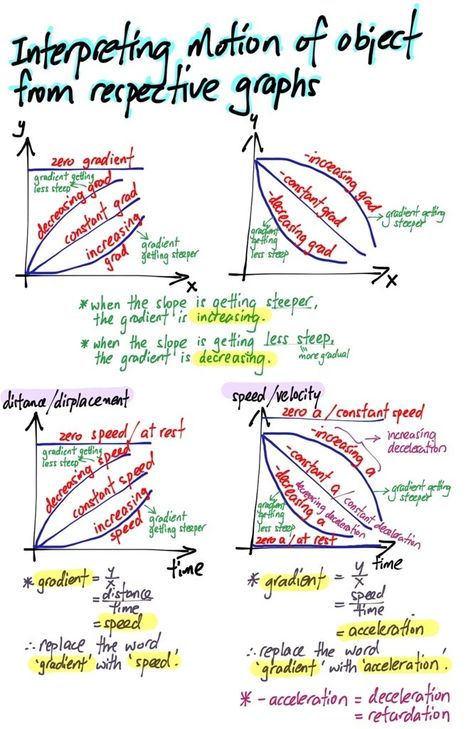 Interpreting Motion of object
from respective graphs
y
zero gradient
gradient getting
less steep
decreasing grad
constant grad
increasing
grad
gradient
getting steeper
x
y
-increasing grad
-constant grad
-decreasing grad
gradient getting
steeper
gradient
getting
less steep
x
*when the slope is getting steeper,
the gradient is increasing.
*when the slope is getting less steep,
the gradient is decreasing.
more gradual
distance/displacement
zero speed/at rest
gradient getting
less steep
decreasing speed
constant speed
increasing
speed
gradient
getting steeper
time
* gradient = y/x
= distance/time
= speed
∴ replace the word
'gradient' with 'speed'.
speed/velocity
zero a/constant speed
-increasing a
increasing
deceleration
-constant a/constant deceleration
-decreasing a
decreasing deceleration
gradient getting
steeper
gradient
getting
less steep
zero a/at rest
time
* gradient = y/x
= speed/time
= acceleration
∴ replace the word
'gradient' with 'acceleration'.
* -acceleration = deceleration
= retardation